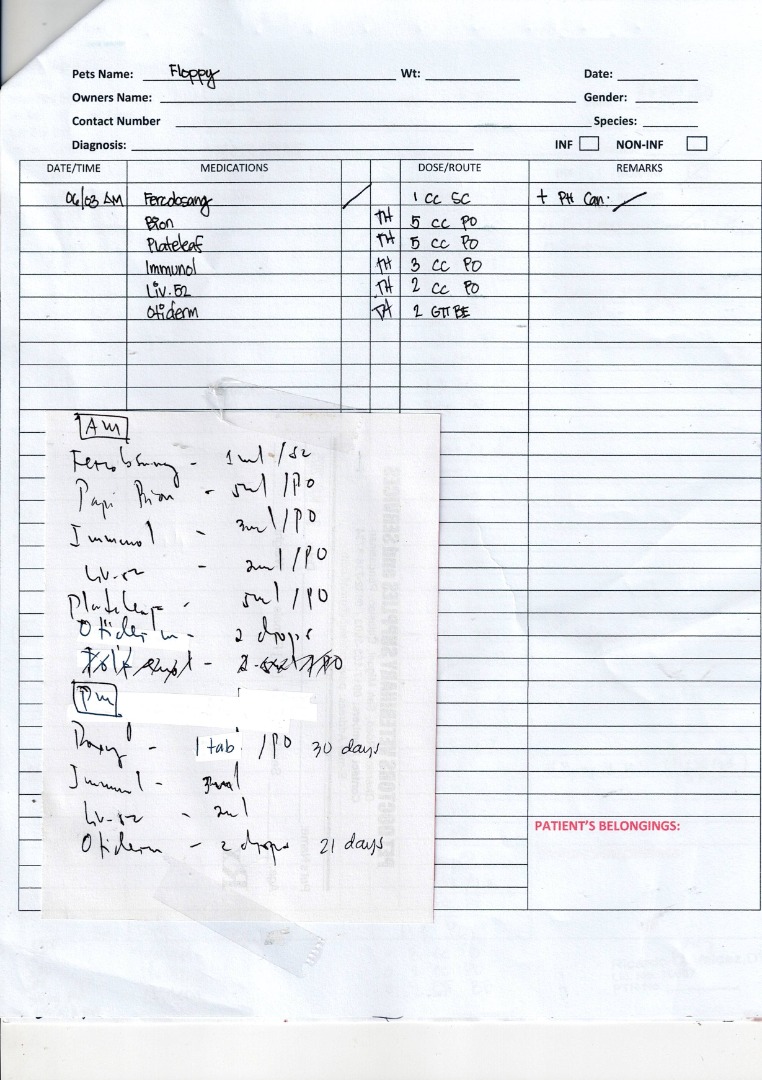 Pets Name: Floppy Wt: Date:
Owners Name: Gender:
Contact Number Species:
Diagnosis: INF NON-INF
DATE/TIME MEDICATIONS DOSE/ROUTE REMARKS
06/03 AM Ferodosang 1 cc SC + PH Can.
Bion TH 5 cc PO
Plateleaf TH 5 cc PO
Immunol TH 3 cc PO
Liv.52 TH 2 cc PO
Otiderm TH 2 GTT BE
AM
1ml /s2
Papi Bion - 5ml /PO
Immunol - 3ml /PO
Liv-52 - 2ml /PO
Plateleaf - 5ml /PO
Otiderm - 2 drops
PM
Doxy - 1 tab /PO 30 days
Immunol - 3ml
Liv-52 - 2ml
Otiderm - 2 drops 21 days
PATIENT'S BELONGINGS: